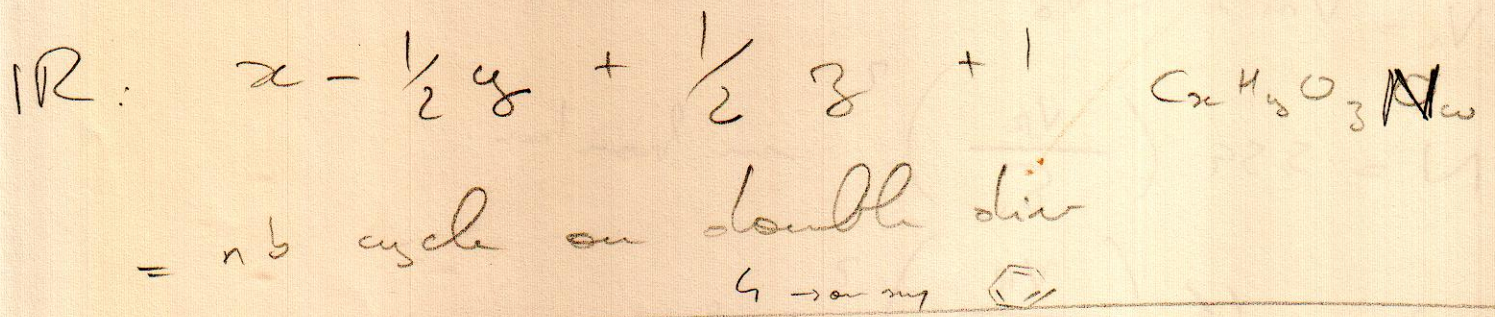 IR: x - 1/2 y + 1/2 z + 1 CxHyOzNw
= nb cycle ou double
4